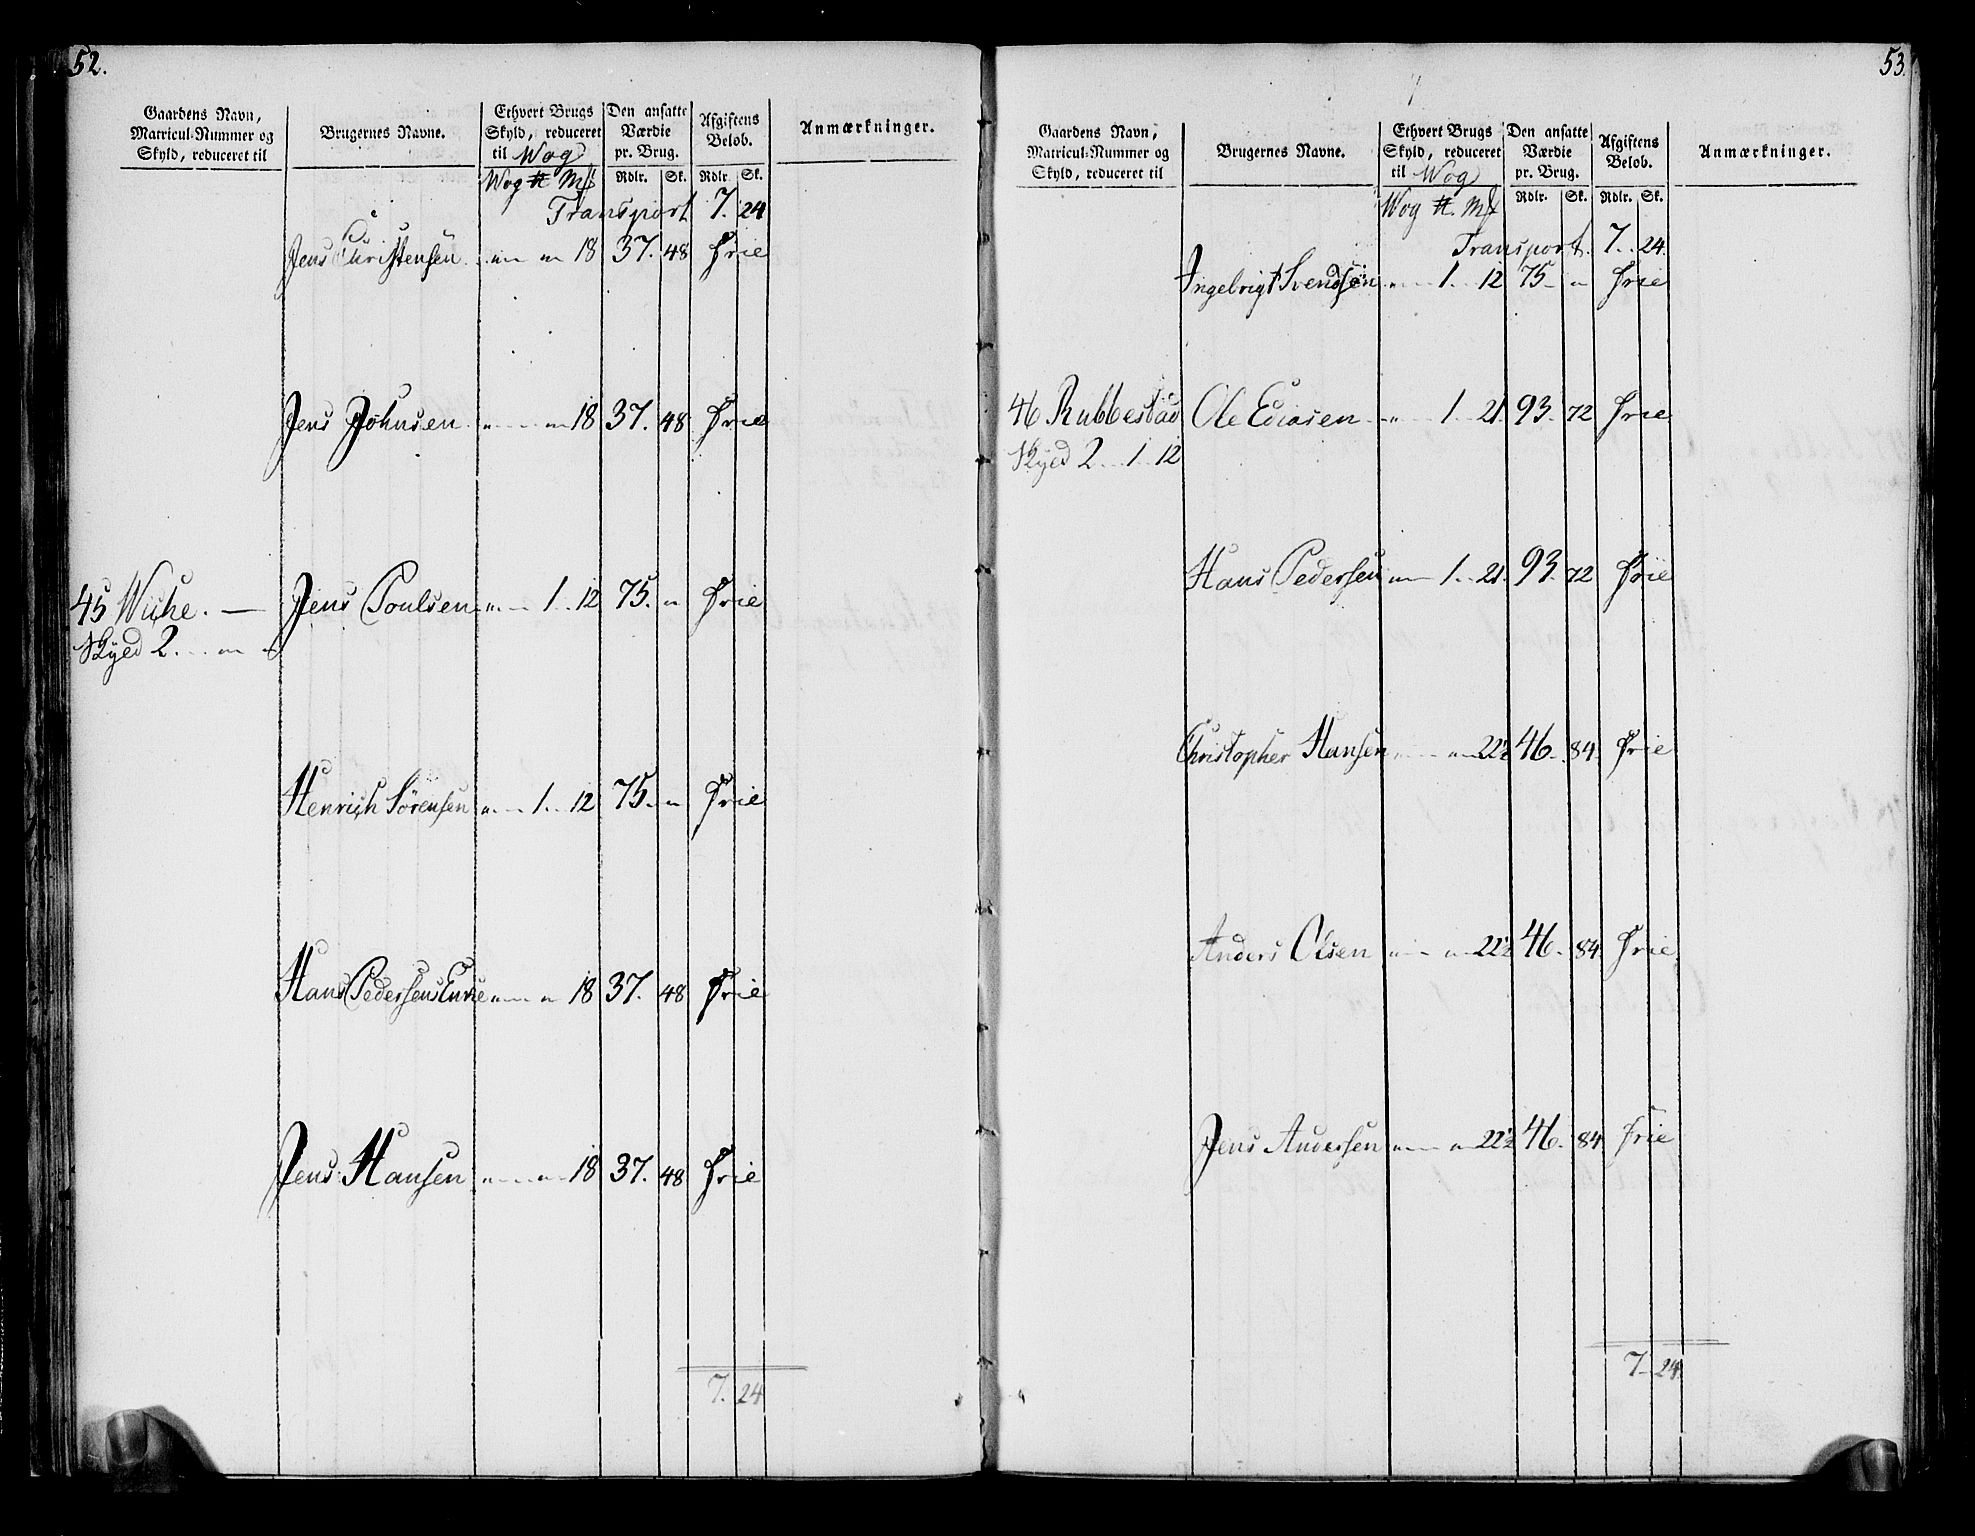 52.
Gaardens Navn, Matricul-Nummer og Skyld, reduceret til
Brugernes Navne.
Ethvert Brugs Skyld, reduceret til Wog
Den ansatte Værdie pr. Brug.
Afgiftens Beløb.
Anmærkninger.
Wog ℔ Mk Rdlr. Sk. Rdlr. Sk.
Transport 7. 24
Jens Christensen 18 37. 48 Frie
Jens Johnsen 18 37. 48 Frie
45 Wiche. — Jens Poulsen 1 . . 12 75. " Frie
Skyld 2
Henrich Sörensen 1 . . 12 75. " Frie
Hans Pedersens Enke 18 37. 48 Frie
Jens Hansen 18 37. 48 Frie
7. 24
53.
Gaardens Navn, Matricul-Nummer og Skyld, reduceret til
Brugernes Navne.
Ethvert Brugs Skyld, reduceret til Wog
Den ansatte Værdie pr. Brug.
Afgiftens Beløb.
Anmærkninger.
Wog ℔ Mk Rdlr. Sk. Rdlr. Sk.
Transport. 7. 24.
Ingebrigt Svendsen 1 . . 12 75 " Frie
46 Rubbestad Ole 1 . . 21. 93. 72 Frie
Skyld 2 . . 1 . . 12
Hans Pedersen 1 . . 21. 93. 72 Frie
Christopher Hansen 22½ 46. 84. Frie
Anders Olsen 22½ 46. 84. Frie
Jens Andersen 22½ 46. 84. Frie
7. 24.